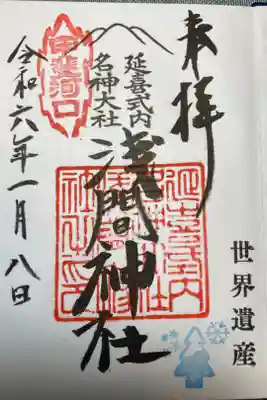 奉拝
世界遺産
延喜式内
名神大社
浅間神社
甲斐河口
令和六年一月八日